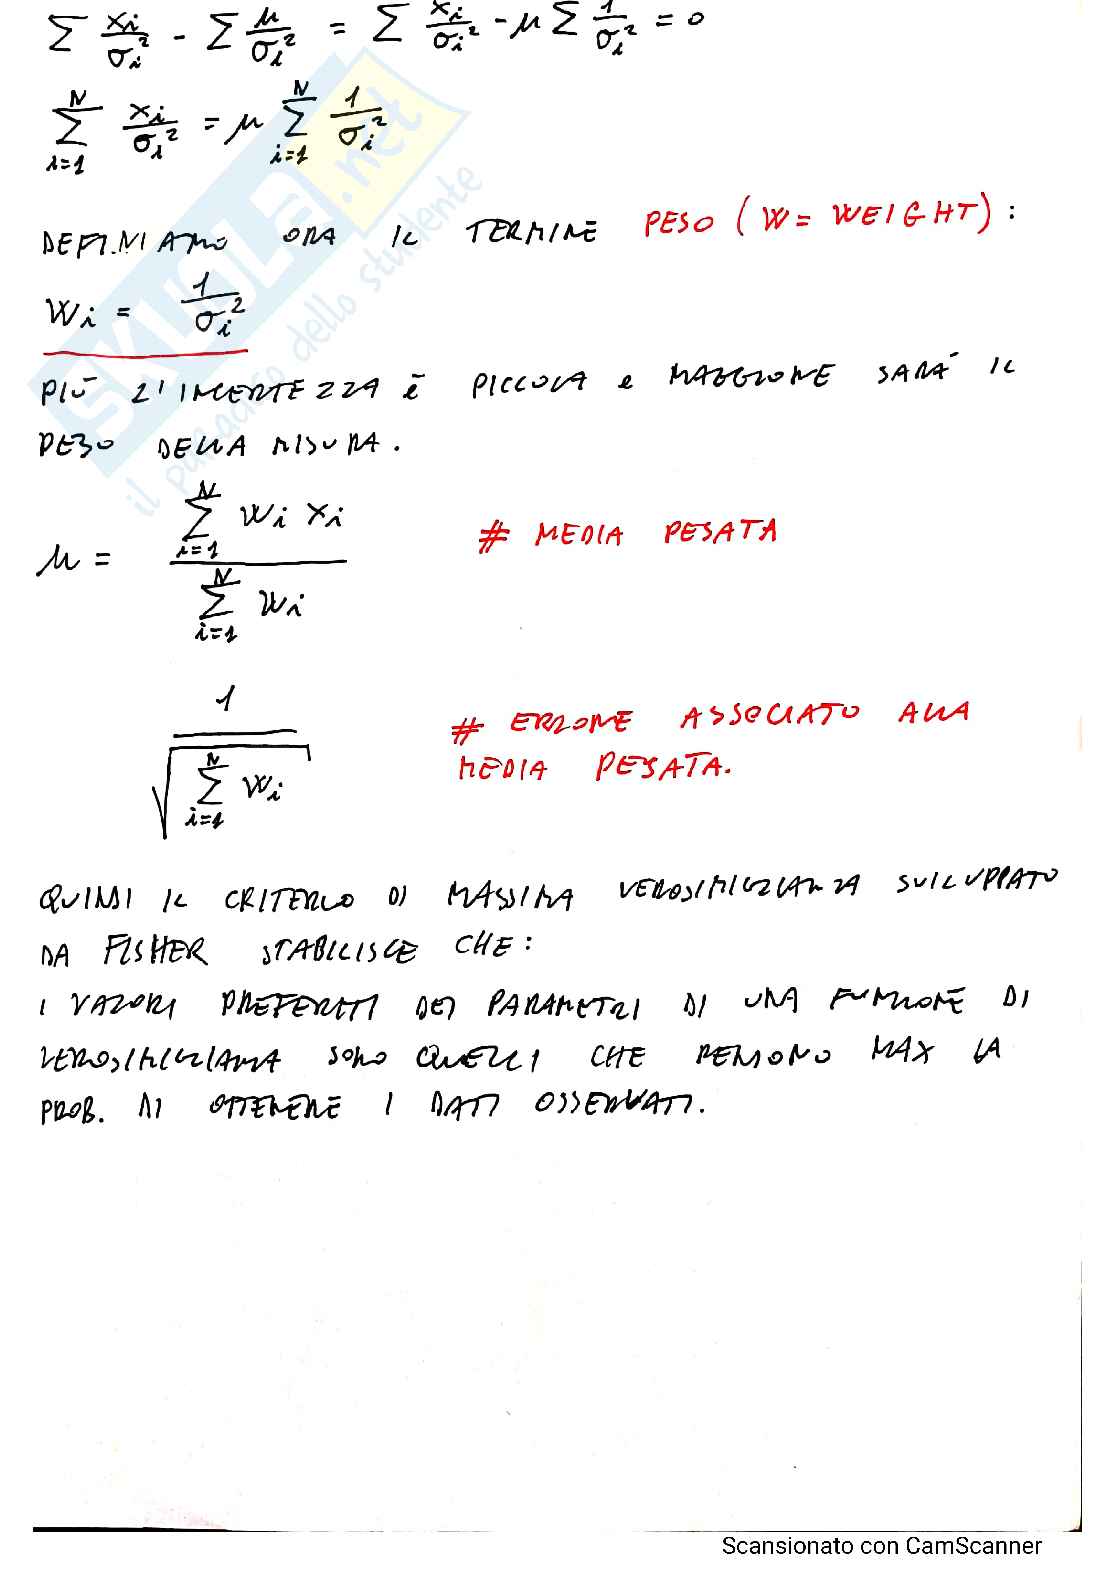 ∑ xi/σi² - ∑ μ/σi² = ∑ xi/σi² - μ ∑ 1/σi² = 0
∑_{i=1}^{N} xi/σi² = μ ∑_{i=1}^{N} 1/σi²
DEFINIAMO ORA IL TERMINE PESO (W = WEIGHT):
Wi = 1/σi²
PIÙ L'INCERTEZZA È PICCOLA e MAGGIORE SARÀ IL
PESO DELLA MISURA.
μ = ∑_{i=1}^{N} Wi xi / ∑_{i=1}^{N} Wi # MEDIA PESATA
1 / √(∑_{i=1}^{N} Wi) # ERRORE ASSOCIATO ALLA
MEDIA PESATA.
QUINDI IL CRITERIO DI MASSIMA VEROSIMIGLIANZA SVILUPPATO
DA FISHER STABILISCE CHE:
I VALORI PREFERITI DEI PARAMETRI DI UNA FUNZIONE DI
VEROSIMIGLIANZA SONO QUELLI CHE RENDONO MAX LA
PROB. DI OTTENERE I DATI OSSERVATI.
SKUOLA.net
il paradiso dello studente
Scansionato con CamScanner